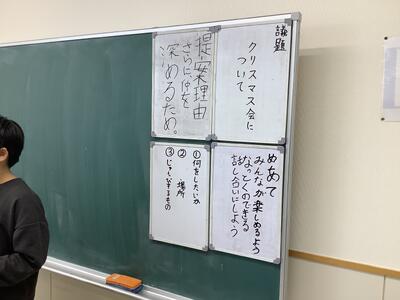 議題
クリスマス会に
ついて
提案理由
さらに、仲を
深めるため。
めあて
みんなが楽しめるよう
なっとくのできる
話し合いにしよう
①何をしたいか
②場所
③じゅんびするもの